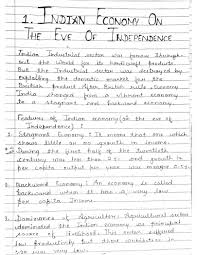 1. INDIAN ECONOMY ON
THE EVE OF INDEPENDENCE
Indian Industrial sector was famous through-
out the World for its handicraft products
But the Industrial sector was destroyed by
exploiting the domestic market for the
British Product. After British rule economy
India changed from a vibrant economy
to a stagnant and backward economy
Features of Indian economy (at the eve of
Independence) :
1. Stagnant Economy : It means that one which
shows little or no growth in income.
During the first half of the twentieth
century was less than 2% and growth in
per capita output per year was
2. Backward Economy : An economy is called
backward when it has a very low
per capita Income
3. Dominance of Agriculture : Agricultural sector
dominated the Indian economy as
source of livelihood. This sector
low productivity but
was very low.